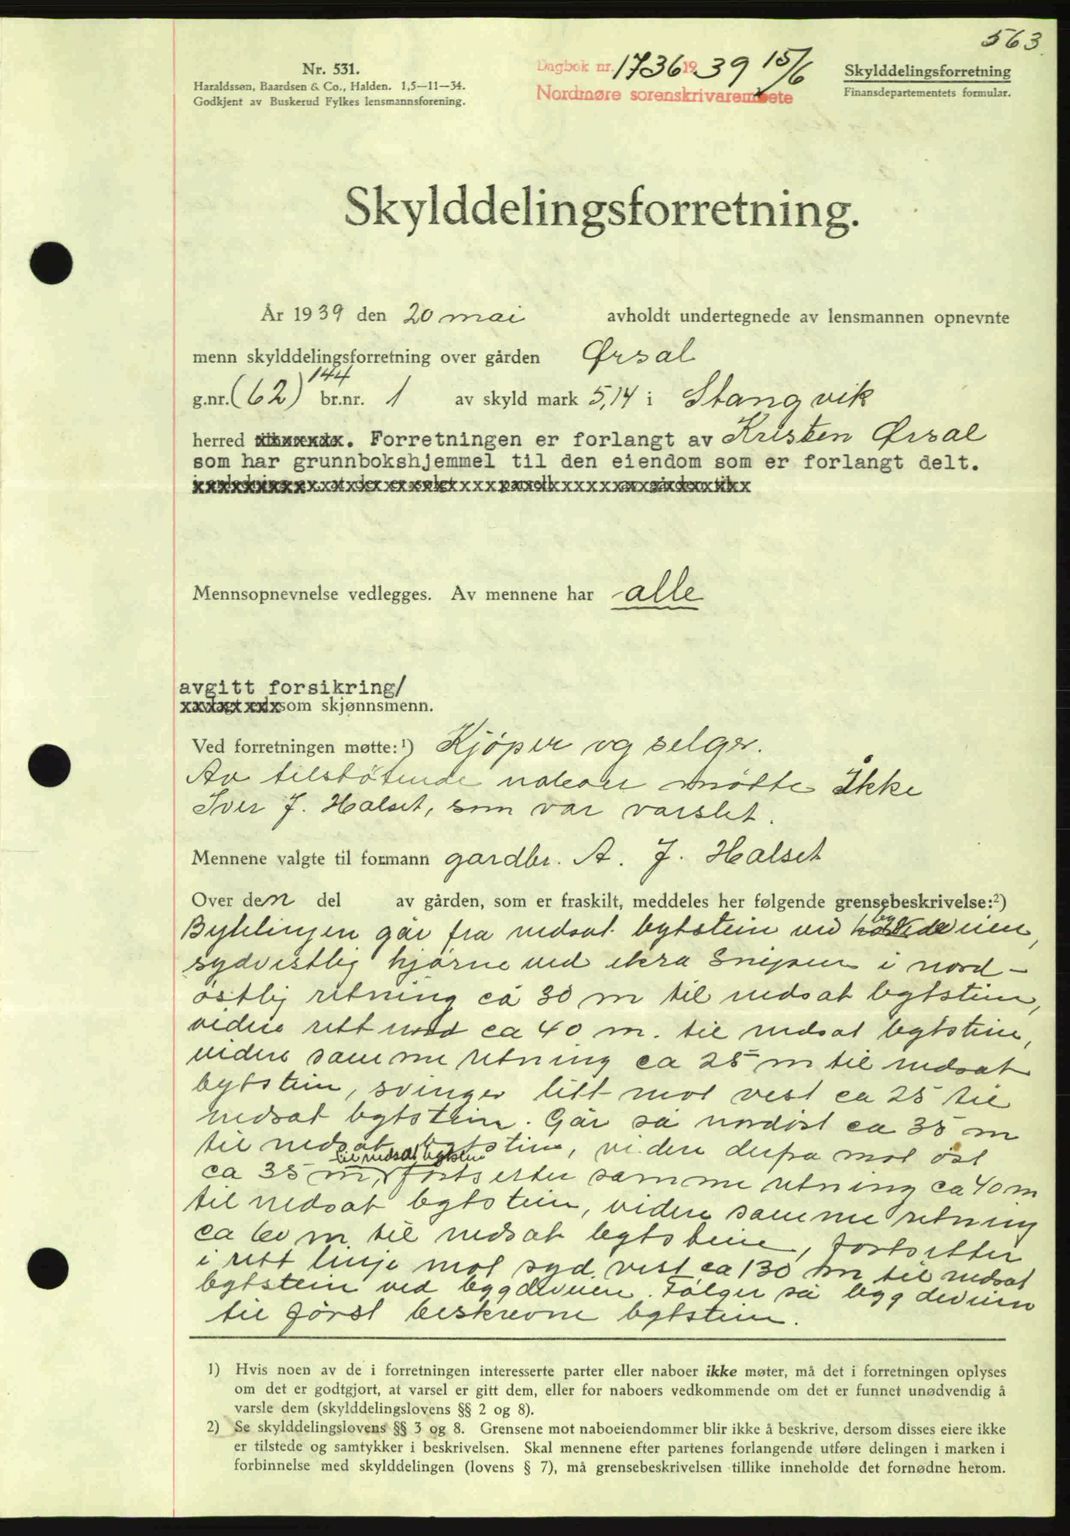 563
Nr. 531.
Haraldssøn, Baardsen & Co., Halden. 1,5—11—34.
Godkjent av Buskerud Fylkes lensmannsforening.
Dagbok nr. 1736 1939 15/6
Nordmøre sorenskrivarembete
Skylddelingsforretning
Finansdepartementets formular.
Skylddelingsforretning.
År 1939 den 20 mai avholdt undertegnede av lensmannen opnevnte
menn skylddelingsforretning over gården Ørsal
g.nr. (62) 144 br.nr. 1 av skyld mark 5,14 i Stangvik
herred. Forretningen er forlangt av Kristen Ørsal
som har grunnbokshjemmel til den eiendom som er forlangt delt.
Mennsopnevnelse vedlegges. Av mennene har alle
avgitt forsikring/
som skjønnsmenn.
Ved forretningen møtte:¹) Kjøper og selger.
Av tilstøtende naboer møtte ikke
Iver J. Halset, som var varslet.
Mennene valgte til formann gardbr. A. J. Halset
Over den del av gården, som er fraskilt, meddeles her følgende grensebeskrivelse:²)
Bytelinjen går fra nedsat bytstein ved bygdeveien,
sydvestlig hjørne ved ekra Snejsen i nord-
østlig retning ca 30 m til nedsat bytstein,
videre rett nord ca 40 m. til nedsat bytstein,
videre samme retning ca 25 m til nedsat
bytstein, svinger litt mot vest ca 25 til
nedsat bytstein. Går så nordøst ca 35 m
til nedsat bytstein, videre derfra mot øst
ca 35 m til nedsat bytstein, fortsetter samme retning ca 40 m
til nedsat bytstein, videre samme retning
ca 60 m til nedsat bytstein, fortsetter
i rett linje mot syd vest ca 130 m til nedsat
bytstein ved bygdeveien. Følger så bygdeveien
til først beskrevne bytstein.
1) Hvis noen av de i forretningen interesserte parter eller naboer ikke møter, må det i forretningen oplyses
om det er godtgjort, at varsel er gitt dem, eller for naboers vedkommende om det er funnet unødvendig å
varsle dem (skylddelingslovens §§ 2 og 8).
2) Se skylddelingslovens §§ 3 og 8. Grensene mot naboeiendommer blir ikke å beskrive, dersom disses eiere ikke
er tilstede og samtykker i beskrivelsen. Skal mennene efter partenes forlangende utføre delingen i marken i
forbinnelse med skylddelingen (lovens § 7), må grensebeskrivelsen tillike inneholde det fornødne herom.